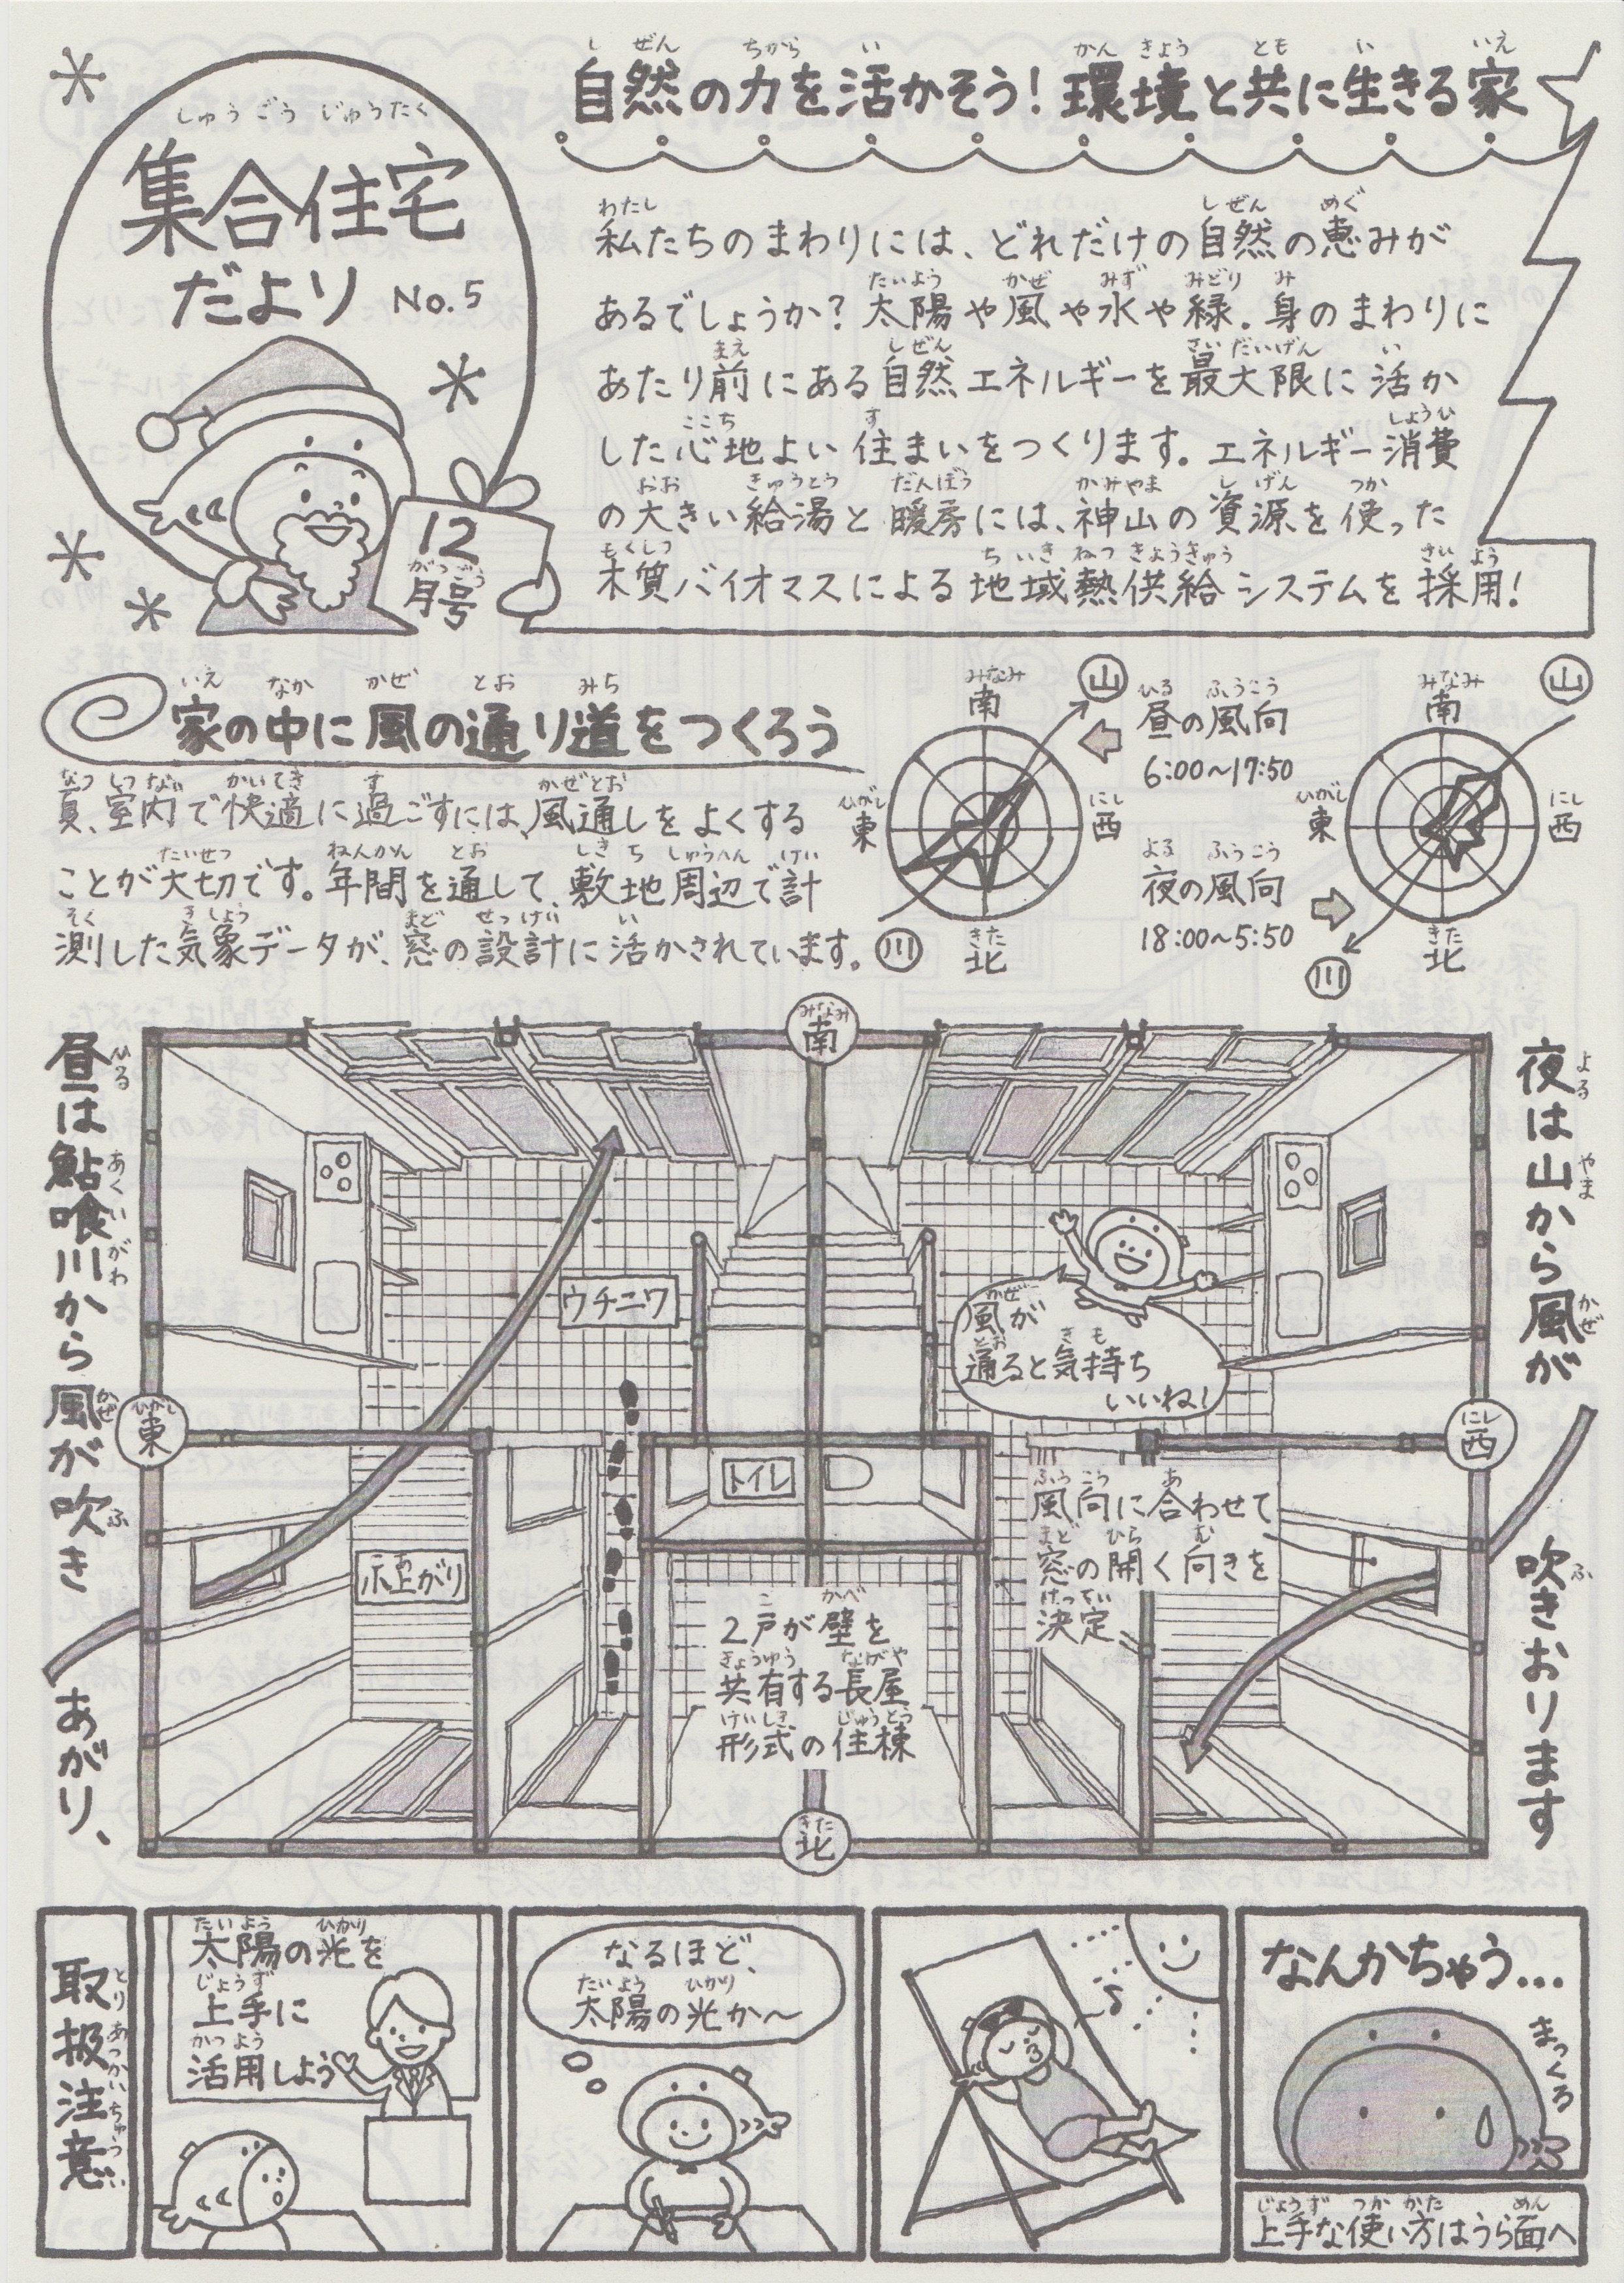 集合住宅
だより No.5
12
月号
自然の力を活かそう！環境と共に生きる家
私たちのまわりには、どれだけの自然の恵みが
あるでしょうか？太陽や風や水や緑。身のまわりに
あたり前にある自然エネルギーを最大限に活か
した心地よい住まいをつくります。エネルギー消費
の大きい給湯と暖房には、神山の資源を使った
木質バイオマスによる地域熱供給システムを採用！
家の中に風の通り道をつくろう
夏、室内で快適に過ごすには、風通しをよくする
ことが大切です。年間を通して、敷地周辺で計
測した気象データが、窓の設計に活かされています。
南
山
東
西
川
北
昼の風向
6:00〜17:50
夜の風向
18:00〜5:50
南
山
東
西
川
北
昼は鮎喰川から風が吹き
あがり、
夜は山から風が
吹きおります
南
東
西
北
ウチニワ
風が
通ると気持ち
いいね！
トイレ
小上がり
風向に合わせて
窓の開く向きを
決定
2戸が壁を
共有する長屋
形式の住棟
取扱注意
太陽の光を
上手に
活用しよう
なるほど、
太陽の光か〜
なんかちゃう…
まっくろ
上手な使い方はうら面へ